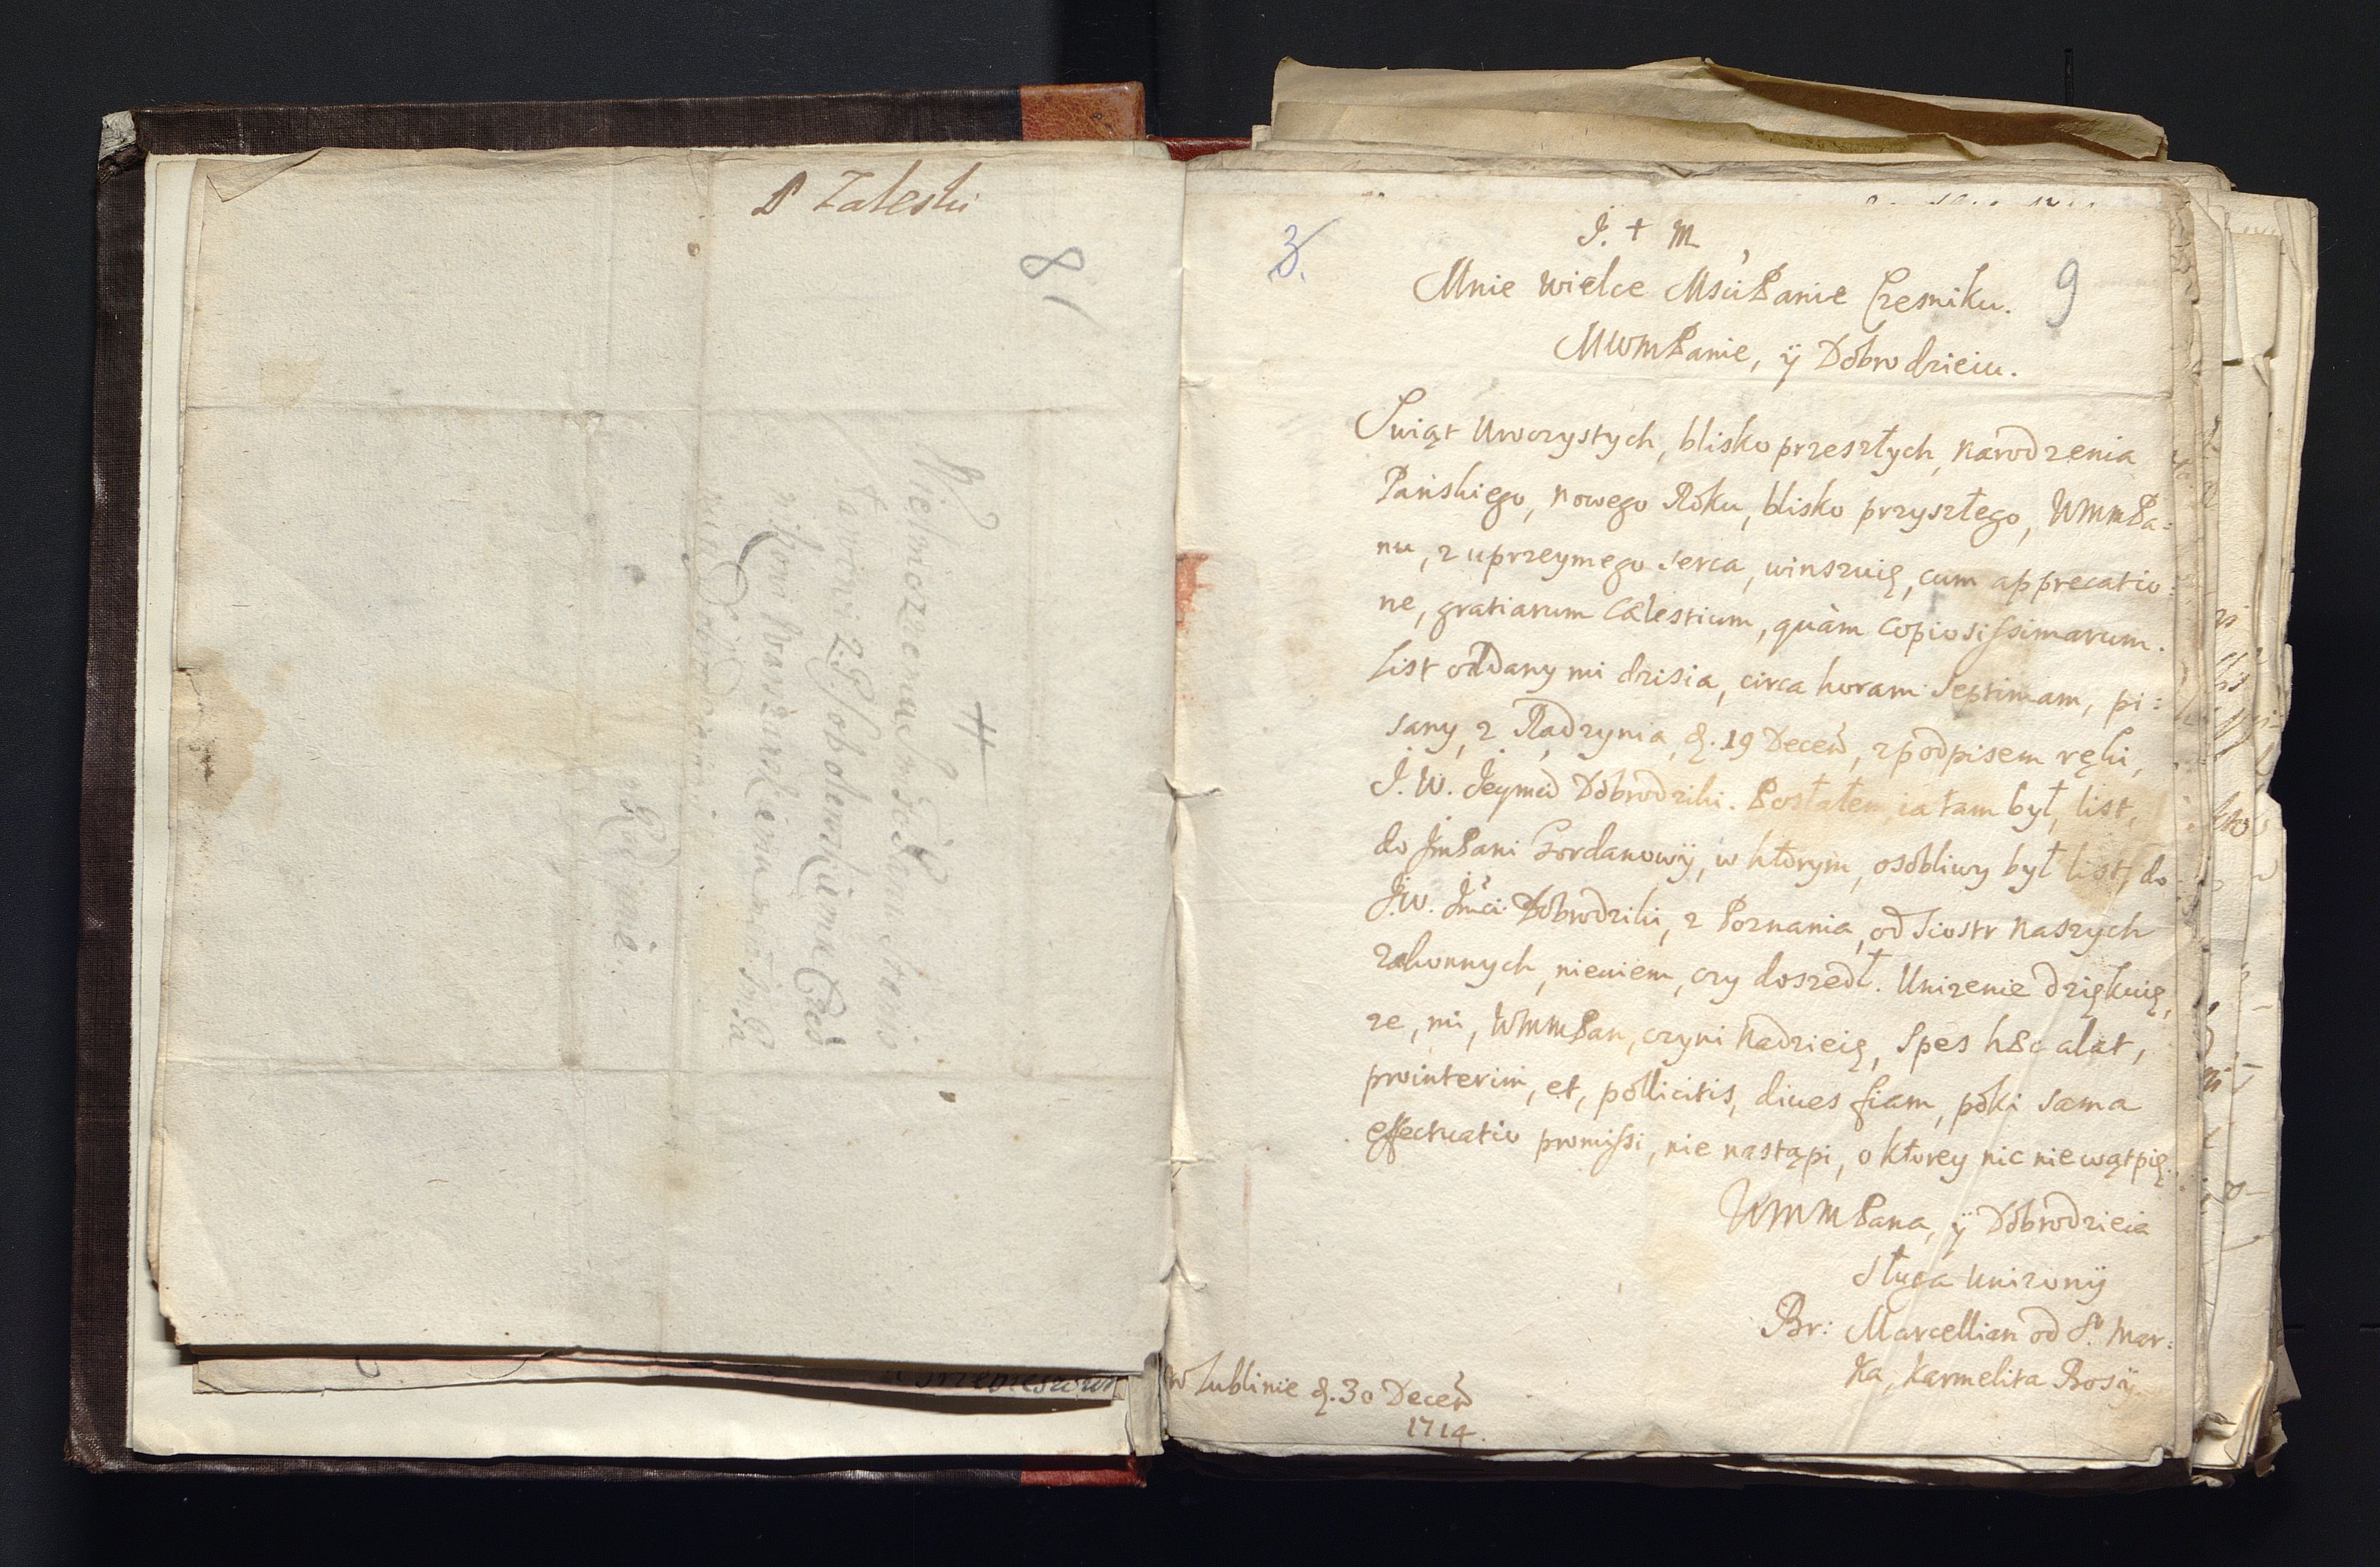 P Zaleski
8
Wielmozņemu
Panowi
Kodynie.
3.
J. + M
9
Mnie wielce MsciPanie Czesniku.
MWMPanie, ÿ Dobrodzieiu.
Swiąt Uroczystych, blisko przeszłych, Narodzenia
Pańskiego, Nowego Roku, blisko przyszłego, WMMPa:
nu, z uprzeymego serca, winszuię, cum apprecatio:
ne, gratiarum Cælestium, quàm copiosissimarum.
List oddany mi dzisia, circa horam septimam, pi:
sany, z Radzynia, d. 19 Decem, z podpisem ręki,
J. W. Jeymci Dobrodziki. Posłałem ia tam był, list,
do JmPani Gordanowÿ, w ktorym, osobliwy był list, do
J.W. Jmci Dobrodziki, z Poznania, od Siostr Naszych
Zakonnych, niewiem, czy doszedł. Unizenie dziękuię,
ze, mi, WMMPan, czyni Nadzieię, Spes hæc alat,
prointerim, et, pollicitis, diues fiam, poki sama
effectuatio promissi, nie nastąpi, o ktorey nic nie wątpię.
WMMPana, ÿ Dobrodzieia
Sługa Unizonÿ
Br: Marcellian od S. Mar:
ka, Karmelita Bosÿ.
w Lublinie d. 30 Decem
1714.